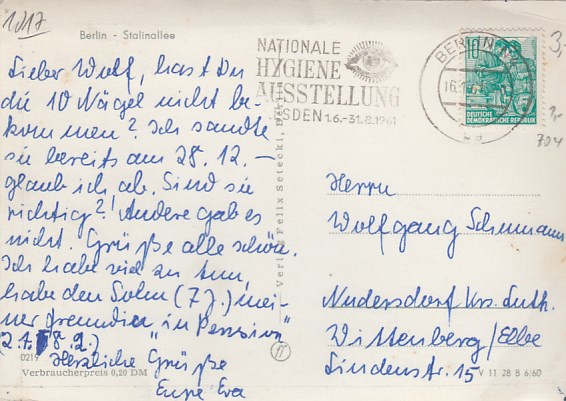 1017
Berlin - Stalinallee
Lieber Wolf, hast Du
die 10 Nägel nicht be-
kommen? Ich sandte
sie bereits am 28.12. –
glaub ich ab. Sind sie
richtig? Andere gab es
nicht. Grüße alle schön.
Ich habe viel zu tun,
habe den Sohn (7 J.) mei-
ner Freundin "in Pension"
(21. 8.2.)
Herzliche Grüße
Eure Eva
0219
Verbraucherpreis 0,20 DM
Verlag Felix Setecki, Berlin
NATIONALE
HYGIENE
AUSSTELLUNG
SDEN 1.6.-31.8.1961
BERLIN
10
DEUTSCHE
DEMOKRATISCHE REPUBLIK
3,-
704
Herrn
Wolfgang Schumann
Nudersdorf Krs. Luth.
Wittenberg/Elbe
Lindenstr. 15
V 11 28 B 6/60